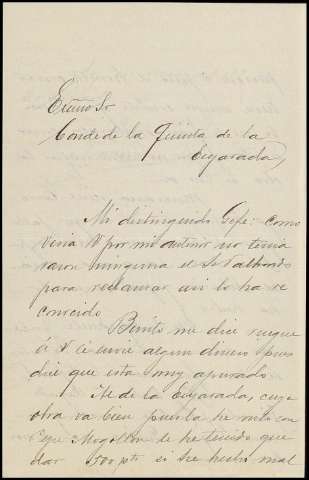 Excmo Sr
Conde de la Quinta de la
Enjarada
Mi distinguido Gefe: como
veria V por mi anterior no tenia
razon ninguna el Sr
para reclamar asi lo ha re
conocido
Benito me dice ruegue
á V le envie algun dinero pues
dice que esta muy apurado
De la Enjarada, cuya
obra va bien puesta he
que he tenido que
dar 1500 pts si he hecho mal